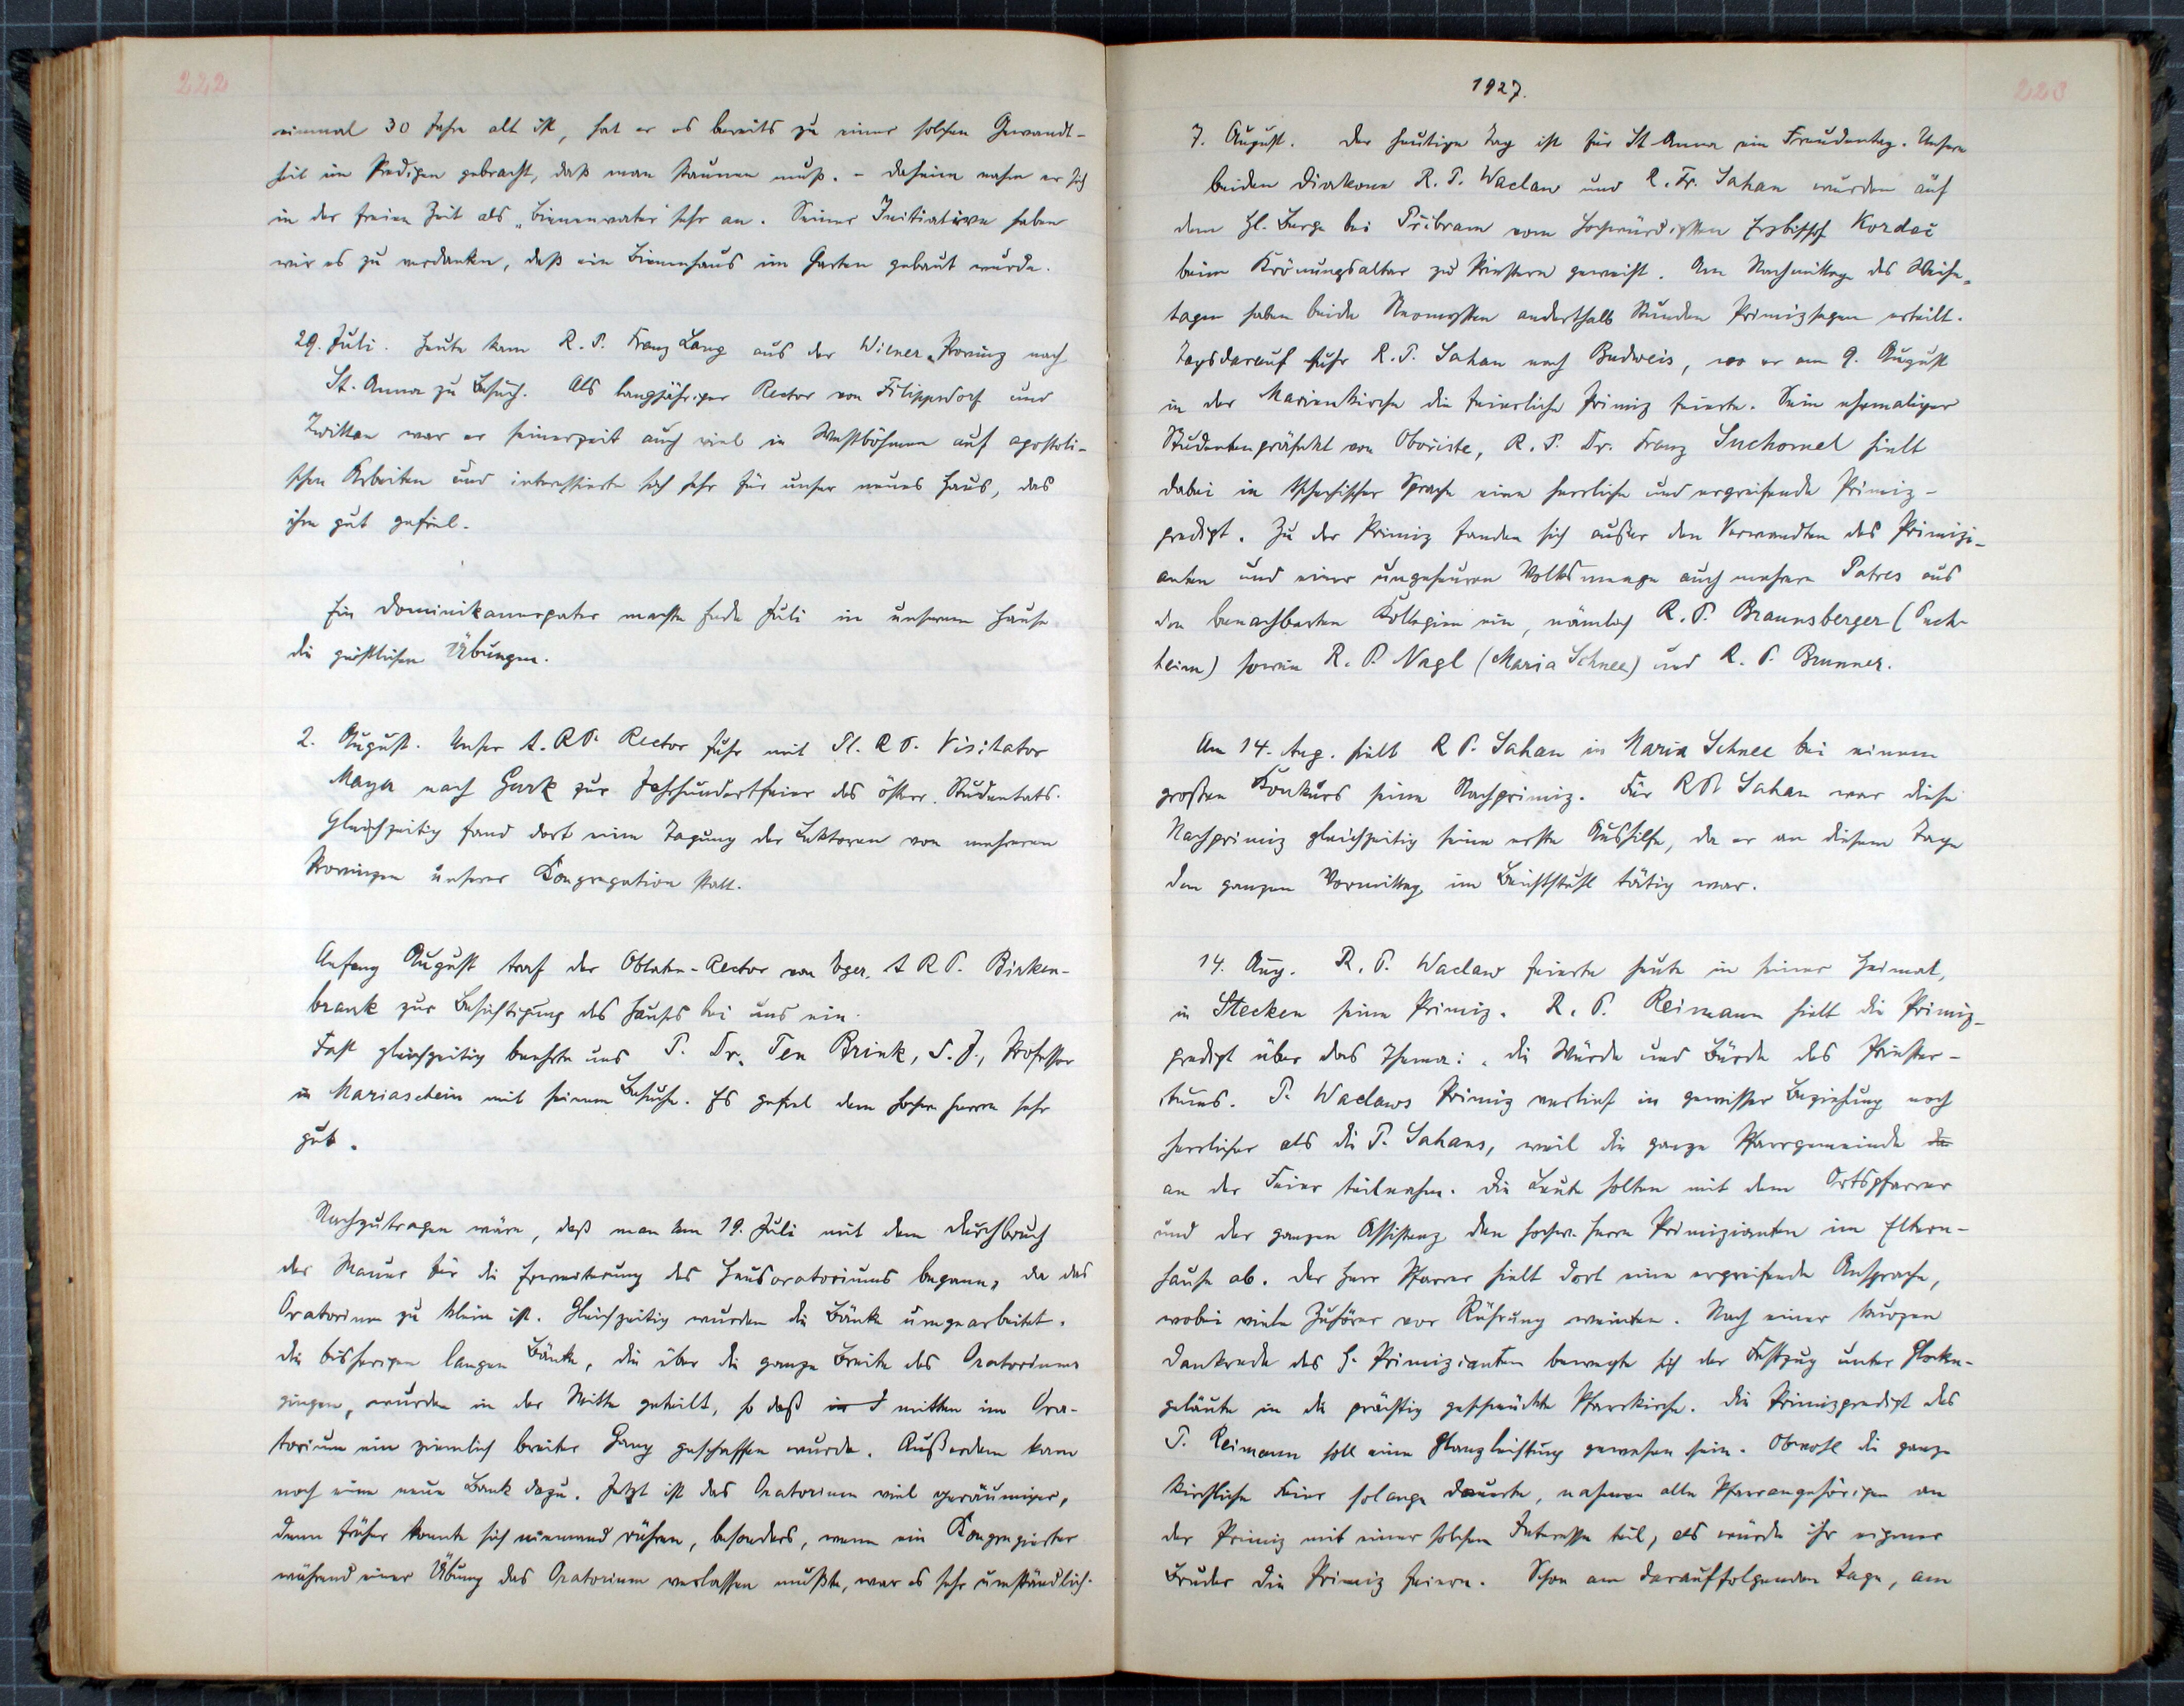 222
einmal 30 Jahre alt ist, hat er es bereits zu einer solchen Gewandt-
heit im Predigen gebracht, daß man staunen muß. - Daheim nahm er sich
in der freien Zeit als „Bienenvater" sehr an. Seiner Initiative haben
wir es zu verdanken, daß ein Bienenhaus im Garten gebaut wurde.
29. Juli. Heute kam R. P. Franz Lang aus der Wiener Provinz nach
St. Anna zu Besuch. Als langjähriger Rector von Filippsdorf und
Zwittau war er seinerzeit auch viel in Westböhmen auf apostoli-
schen Arbeiten und interessierte sich sehr für unser neues Haus, das
ihm gut gefiel.
Ein Dominikanerpater machte Ende Juli in unserem Hause
die geistlichen Übungen.
2. August. Unser A. R. P. Rector fuhr mit Pl. R. P. Visitator
Mayer nach Gurk zur Jahrhundertfeier des österr. Studentats.
Gleichzeitig fand dort eine Tagung der Lektoren von mehreren
Provinzen unserer Kongregation statt.
Anfang August traf der Oblaten-Rector von Eger, A R P. Birken-
brank zur Besichtigung des Hauses bei uns ein.
Fast gleichzeitig beehrte uns P. Dr. Ten Brink, S. J., Professor
in Mariaschein mit seinem Besuche. Es gefiel dem hochw. Herrn sehr
gut.
Nachzutragen wäre, daß man am 19. Juli mit dem Durchbruch
der Mauer für die Erweiterung des Hausoratoriums begann, da das
Oratorium zu klein ist. Gleichzeitig wurden die Bänke umgearbeitet.
Die bisherigen langen Bänke, die über die ganze Breite des Oratoriums
gingen, wurden in der Mitte geteilt, so daß mitten im Ora-
torium ein ziemlich breiter Gang geschaffen wurde. Außerdem kam
noch eine neue Bank dazu. Jetzt ist das Oratorium viel geräumiger,
denn früher konnte sich niemand rühren, besonders, wenn ein Kongregierter
während einer Übung das Oratorium verlassen mußte, war es sehr umständlich.
1927.
223
7. August. Der heutige Tag ist für St. Anna ein Freudentag. Unsere
beiden Diakone R. P. Waclaw und R. Fr. Sahan wurden auf
dem Hl. Berge bei Přibram vom hochwürdigsten Erzbischof Kordač
beim Krönungsaltar zu Priestern geweiht. Am Nachmittage des Weihe-
tages haben beide Neomysten anderthalb Stunden Primizsegen erteilt.
Tagsdarauf fuhr R. P. Sahan nach Budweis, wo er am 9. August
in der Marienkirche die feierliche Primiz feierte. Sein ehemaliger
Studentenpräfekt von Obořiste, R. P. Dr. Franz Suchomel hielt
dabei in tschechischer Sprache eine herrliche und ergreifende Primiz-
predigt. Zu der Primiz fanden sich außer den Verwandten des Primizi-
anten und einer ungeheuren Volksmenge auch mehrere Patres aus
den benachbarten Kollegien ein, nämlich R. P. Braunsberger (Puch-
heim) sowie R. P. Nagl (Maria Schnee) und R. P. Brunner.
Am 14. Aug. hielt R P. Sahan in Maria Schnee bei einem
großen Konkurs seine Nachprimiz. Für R P. Sahan war diese
Nachprimiz gleichzeitig seine erste Aushilfe, da er an diesem Tage
den ganzen Vormittag im Beichtstuhl tätig war.
14. Aug. R. P. Waclaw feierte heute in seiner Heimat,
in Stecken seine Primiz. R. P. Reimann hielt die Primiz-
predigt über das Thema: „die Würde und Bürde des Priester-
tums. P. Waclaws Primiz verlief in gewisser Beziehung noch
herrlicher als die P. Sahans, weil die ganze Pfarrgemeinde
an der Feier teilnahm. Die Leute holten mit dem Ortspfarrer
und der ganzen Assistenz den hochw. Herrn Primizianten im Eltern-
hause ab. Der Herr Pfarrer hielt dort eine ergreifende Ansprache,
wobei viele Zuhörer vor Rührung weinten. Nach einer kurzen
Dankrede des H. Primizianten bewegte sich der Festzug unter Glocken-
geläute in die prächtig geschmückte Pfarrkirche. Die Primizpredigt des
P. Reimann soll eine Glanzleistung gewesen sein. Obwohl die ganze
kirchliche Feier solange dauerte, nahmen alle Pfarrangehörigen an
der Primiz mit einer solchen Interesse teil, als würde ihr eigener
Bruder die Primiz feiern. Schon am darauffolgenden Tage, am